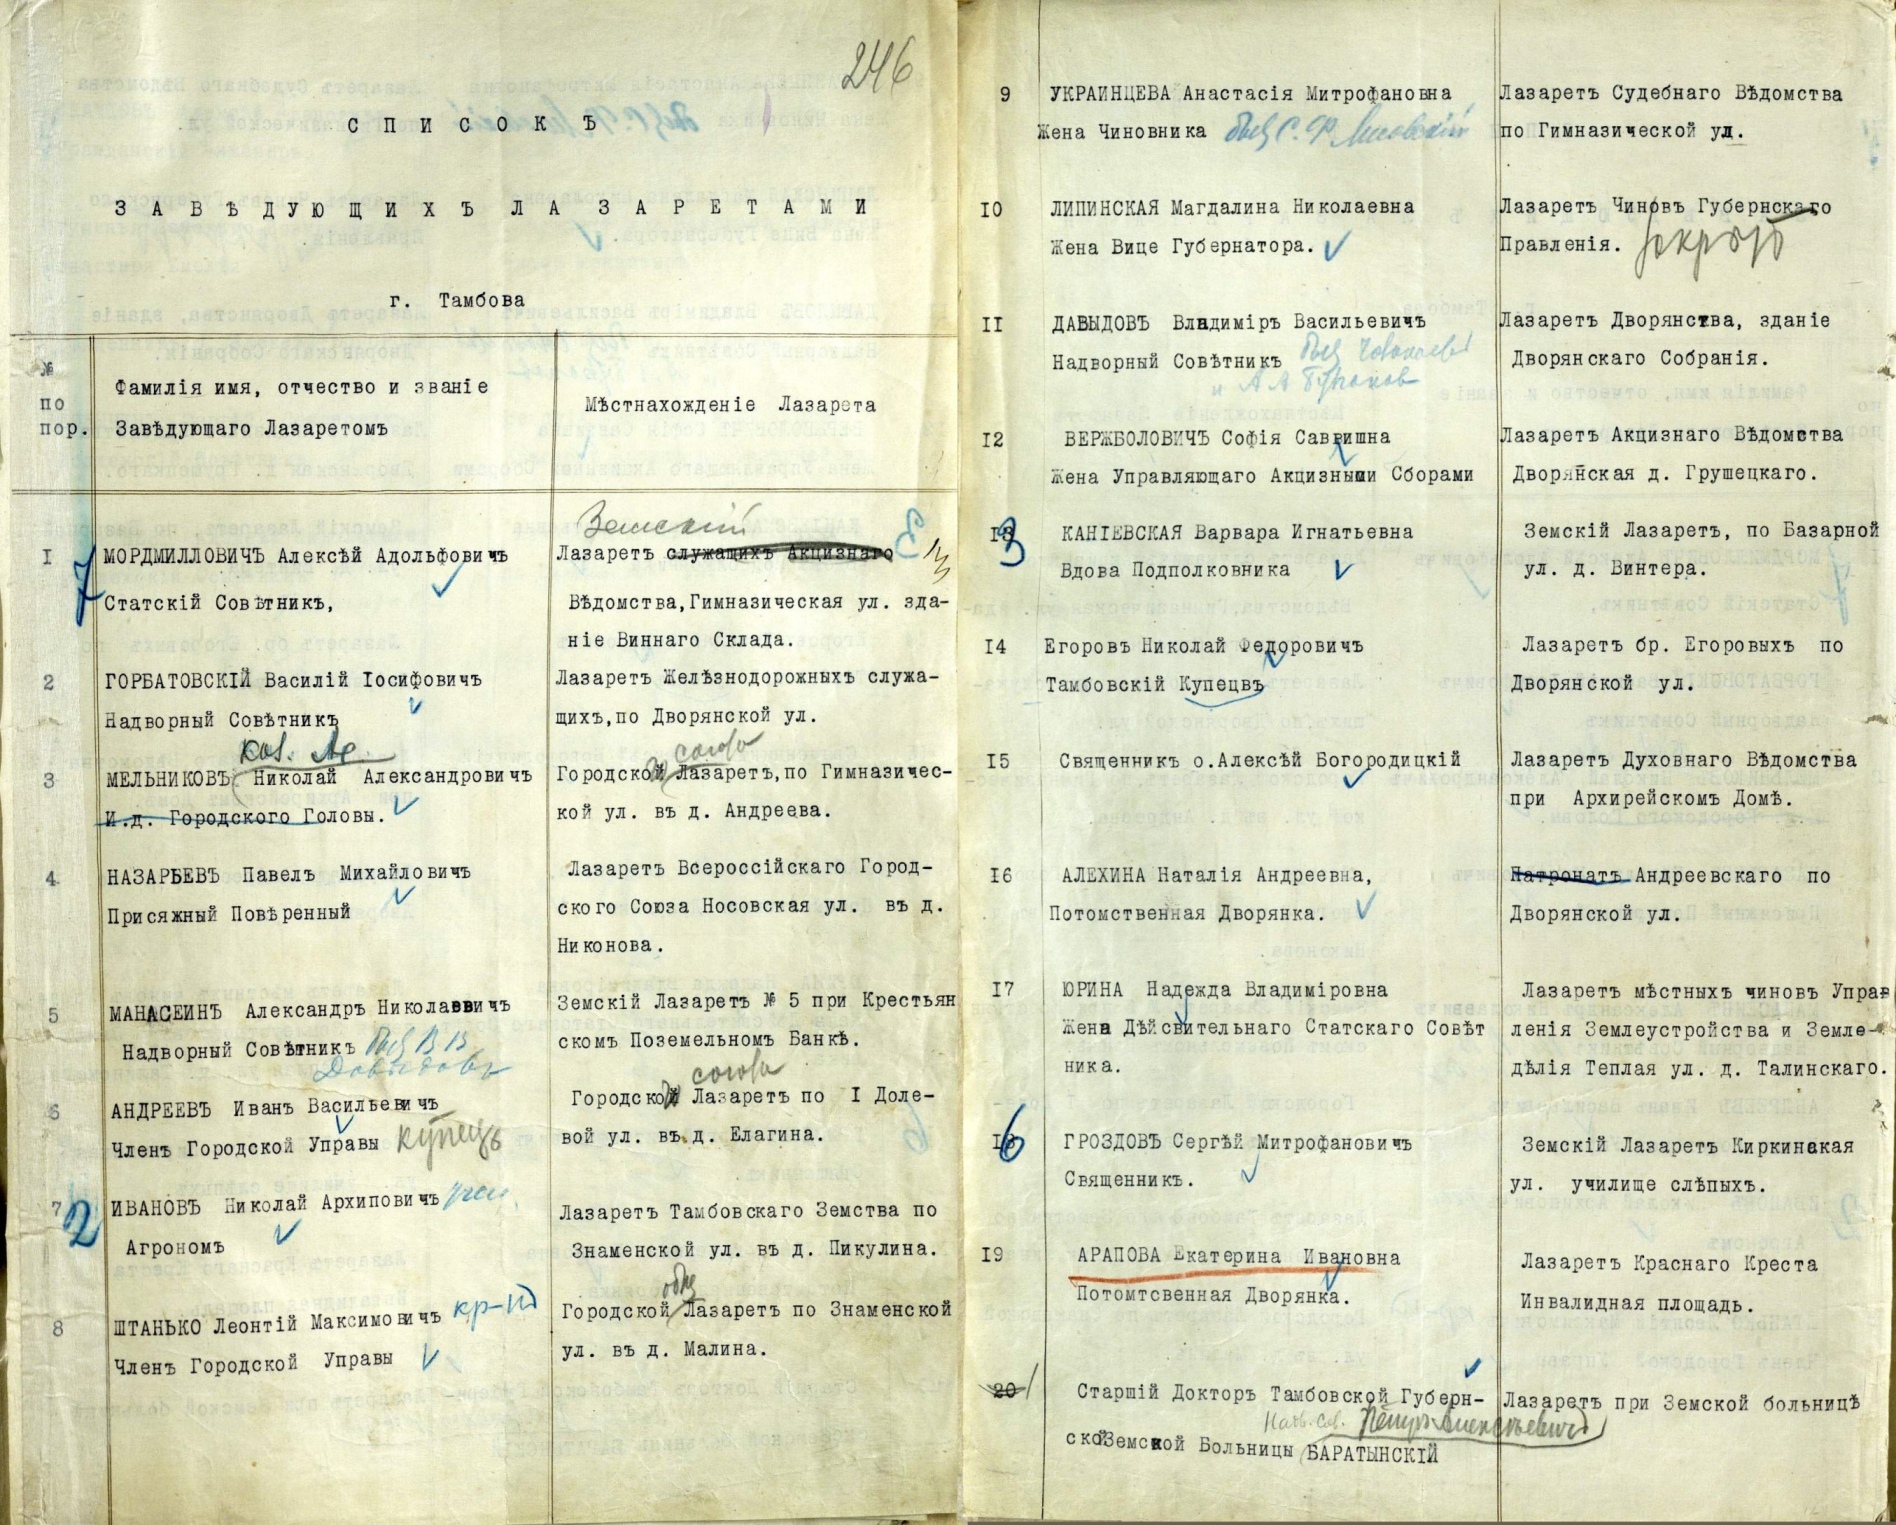 246
СПИСОКЪ
ЗАВѢДУЮЩИХЪ ЛАЗАРЕТАМИ
г. Тамбова
№ по пор.
Фамилія имя, отчество и званіе
Завѣдующаго Лазаретомъ
Мѣстнахожденіе Лазарета
Земскій
I
7
МОРДМИЛЛОВИЧЪ Алексѣй Адольфовичъ
Статскій Совѣтникъ,
Лазаретъ служащихъ Акцизнаго
Вѣдомства, Гимназическая ул. зда-
ніе Виннаго Склада.
2
ГОРБАТОВСКІЙ Василій Іосифовичъ
Надворный Совѣтникъ
Лазаретъ Желѣзнодорожныхъ служа-
щихъ, по Дворянской ул.
3
МЕЛЬНИКОВЪ Николай Александровичъ
И.д. Городского Головы.
союза
Городской Лазаретъ, по Гимназичес-
кой ул. въ д. Андреева.
4
НАЗАРЬЕВЪ Павелъ Михайловичъ
Присяжный Повѣренный
Лазаретъ Всероссійскаго Город-
ского Союза Носовская ул. въ д.
Никонова.
5
МАНАСЕИНЪ Александръ Николаввичъ
Надворный Совѣтникъ В В
Давыдовъ
Земскій Лазаретъ № 5 при Крестьян
скомъ Поземельномъ Банкѣ.
6
АНДРЕЕВЪ Иванъ Васильевичъ
Членъ Городской Управы купецъ
союза
Городской Лазаретъ по I Доле-
вой ул. въ д. Елагина.
7
2
ИВАНОВЪ Николай Архиповичъ
Агрономъ
Лазаретъ Тамбовскаго Земства по
Знаменской ул. въ д. Пикулина.
8
ШТАНЬКО Леонтій Максимовичъ кр-нъ
Членъ Городской Управы
Городской Лазаретъ по Знаменской
ул. въ д. Малина.
9
УКРАИНЦЕВА Анастасія Митрофановна
Жена Чиновника С. Ф.
Лазаретъ Судебнаго Вѣдомства
по Гимназической ул.
IO
ЛИПИНСКАЯ Магдалина Николаевна
Жена Вице Губернатора.
Лазаретъ Чиновъ Губернскаго
Правленія. закрытъ
II
ДАВЫДОВЪ Владиміръ Васильевичъ
Надворный Совѣтникъ
и А А
Лазаретъ Дворянства, зданіе
Дворянскаго Собранія.
I2
ВЕРЖБОЛОВИЧЪ Софія Саввишна
Жена Управляющаго Акцизными Сборами
Лазаретъ Акцизнаго Вѣдомства
Дворянская д. Грушецкаго.
I3
3
КАНІЕВСКАЯ Варвара Игнатьевна
Вдова Подполковника
Земскій Лазаретъ, по Базарной
ул. д. Винтера.
I4
Егоровъ Николай Федоровичъ
Тамбовскій Купецвъ
Лазаретъ бр. Егоровыхъ по
Дворянской ул.
I5
Священникъ о.Алексѣй Богородицкій
Лазаретъ Духовнаго Вѣдомства
при Архирейскомъ Домѣ.
I6
АЛЕХИНА Наталія Андреевна,
Потомственная Дворянка.
Патронатъ Андреевскаго по
Дворянской ул.
I7
ЮРИНА Надежда Владиміровна
Жена Дѣйсвительнаго Статскаго Совѣт
ника.
Лазаретъ мѣстныхъ чиновъ Управ
ленія Землеустройства и Земле-
дѣлія Теплая ул. д. Талинскаго.
I8
6
ГРОЗДОВЪ Сергѣй Митрофановичъ
Священникъ.
Земскій Лазаретъ Киркинская
ул. училище слѣпыхъ.
I9
АРАПОВА Екатерина Ивановна
Потомтсвенная Дворянка.
Лазаретъ Краснаго Креста
Инвалидная площадь.
20
Старшій Докторъ Тамбовской Губерн-
Надв. Сов. Петръ Алексѣевичъ
скойЗемской Больницы БАРАТЫНСКІЙ
Лазаретъ при Земской больницѣ